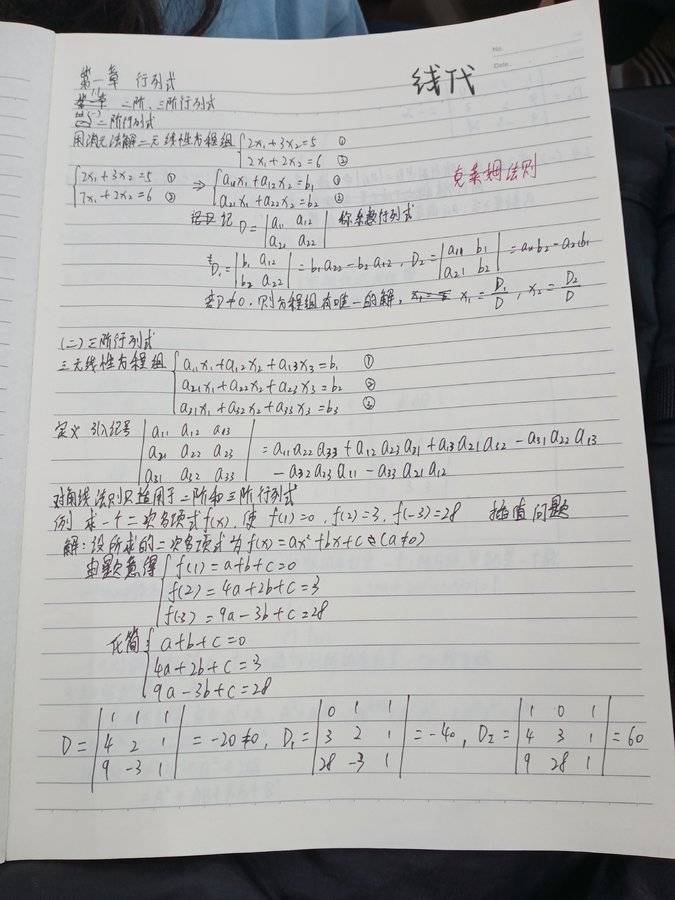 No.
Date
线代
第一章 行列式
二阶、三阶行列式
二阶行列式
用消元法解二元线性方程组 { 2x₁+3x₂=5 ①
2x₁+2x₂=6 ②
{ 2x₁+3x₂=5 ① ⇒ { a₁₁x₁+a₁₂x₂=b₁ ①
7x₁+2x₂=6 ② a₂₁x₁+a₂₂x₂=b₂ ②
克莱姆法则
记 D = | a₁₁ a₁₂ | 称系数行列式
| a₂₁ a₂₂ |
D₁ = | b₁ a₁₂ | = b₁a₂₂-b₂a₁₂, D₂ = | a₁₁ b₁ | = a₁₁b₂-a₂₁b₁
| b₂ a₂₂ | | a₂₁ b₂ |
若D≠0,则方程组有唯一的解, x₁ = D₁/D , x₂ = D₂/D
(二)三阶行列式
三元线性方程组 { a₁₁x₁+a₁₂x₂+a₁₃x₃=b₁ ①
a₂₁x₁+a₂₂x₂+a₂₃x₃=b₂ ②
a₃₁x₁+a₃₂x₂+a₃₃x₃=b₃ ③
定义 引入记号 | a₁₁ a₁₂ a₁₃ |
| a₂₁ a₂₂ a₂₃ | = a₁₁a₂₂a₃₃+a₁₂a₂₃a₃₁+a₁₃a₂₁a₃₂-a₃₁a₂₂a₁₃
| a₃₁ a₃₂ a₃₃ | -a₃₂a₂₃a₁₁-a₃₃a₂₁a₁₂
对角线法则只适用于二阶和三阶行列式
例 求一个二次多项式f(x),使 f(1)=0, f(2)=3, f(-3)=28 插值问题
解:设所求的二次多项式为f(x)=ax²+bx+c (a≠0)
由题意得 { f(1)=a+b+c=0
f(2)=4a+2b+c=3
f(-3)=9a-3b+c=28
化简 { a+b+c=0
4a+2b+c=3
9a-3b+c=28
| 1 1 1 | | 0 1 1 | | 1 0 1 |
D = | 4 2 1 | = -20≠0, D₁ = | 3 2 1 | = -40, D₂ = | 4 3 1 | = 60
| 9 -3 1 | | 28 -3 1 | | 9 28 1 |